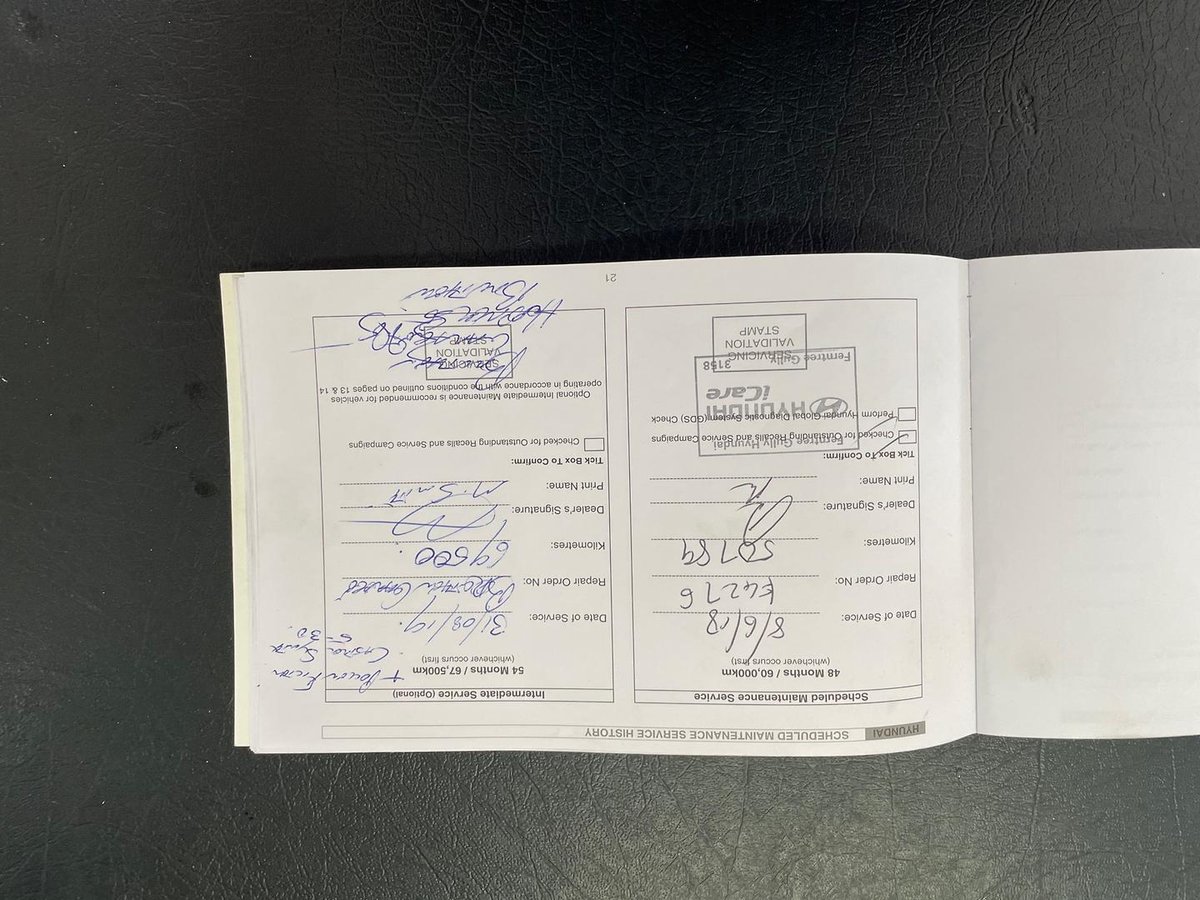 HYUNDAI SCHEDULED MAINTENANCE SERVICE HISTORY
Scheduled Maintenance Service
48 Months / 60,000km
(whichever occurs first)
Date of Service: 8/6/18
Repair Order No:
Kilometres: 50789
Dealer's Signature:
Print Name:
Tick Box To Confirm:
Checked for Outstanding Recalls and Service Campaigns
Perform Hyundai Global Diagnostic System (GDS) Check
Ferntree Gully Hyundai
HYUNDAI iCare
Ferntree Gully 3158
SERVICING
VALIDATION
STAMP
Intermediate Service (Optional)
54 Months / 67,500km
(whichever occurs first)
Date of Service: 31/08/19.
Repair Order No:
Kilometres: 69500.
Dealer's Signature:
Print Name: M. Smith
Tick Box To Confirm:
Checked for Outstanding Recalls and Service Campaigns
Optional Intermediate Maintenance is recommended for vehicles
operating in accordance with the conditions outlined on pages 13 & 14
SERVICING
VALIDATION
STAMP
21